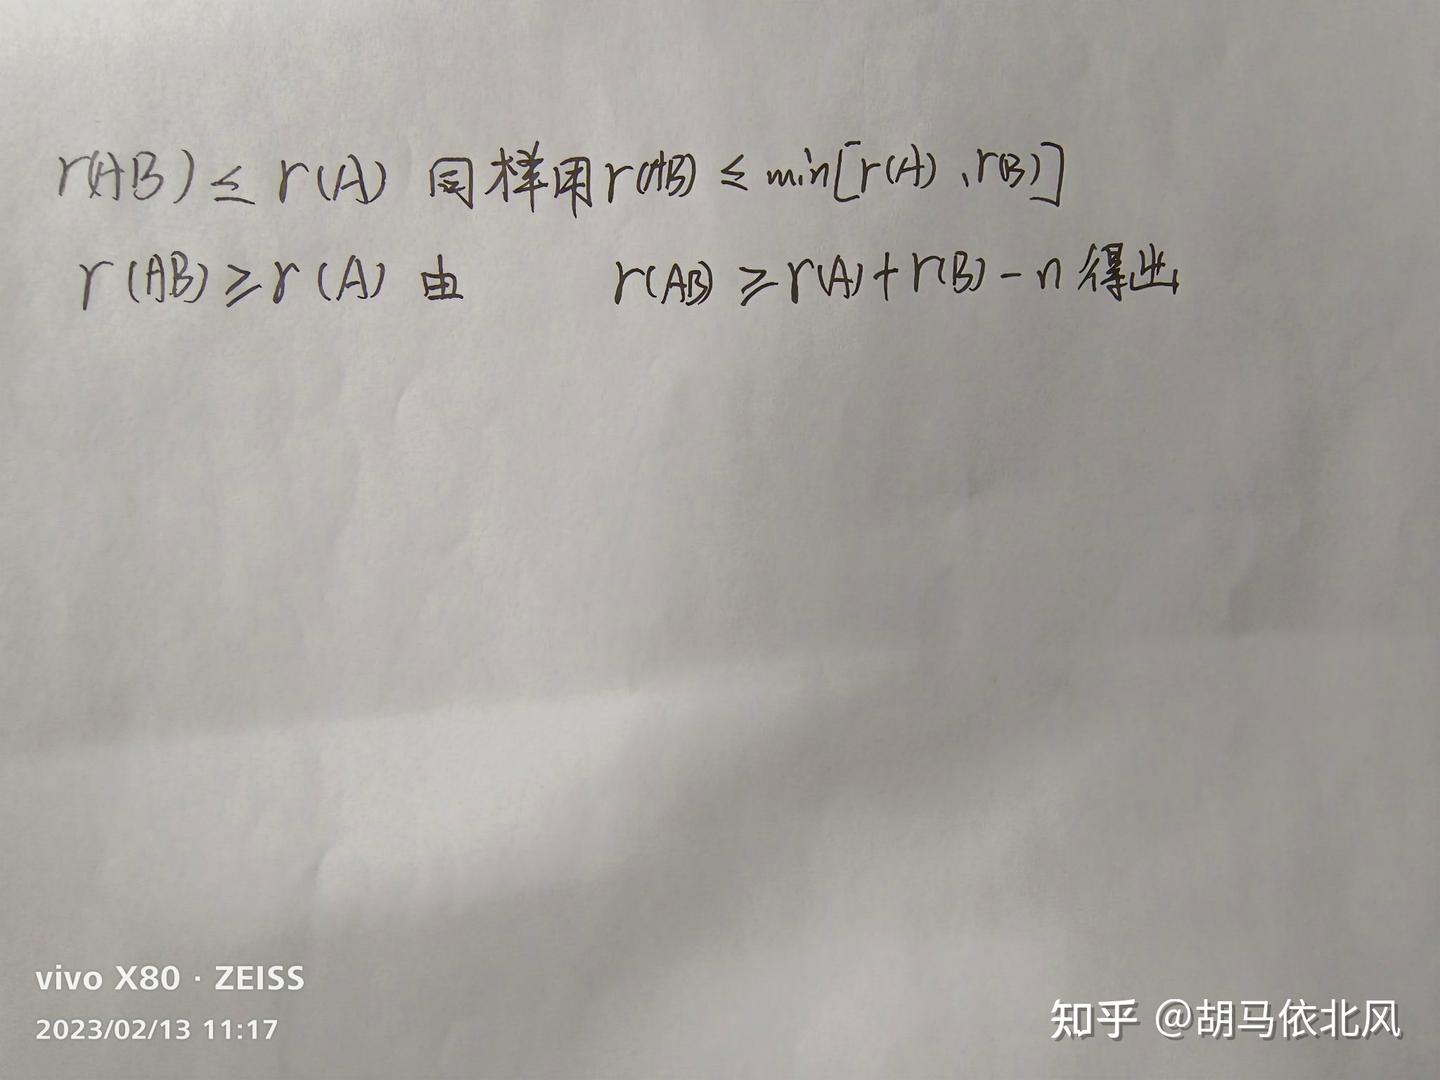 r(AB) ≤ r(A) 同样用 r(AB) ≤ min[r(A)、r(B)]
r(AB) ≥ r(A) 由 r(AB) ≥ r(A) + r(B) - n 得出
vivo X80 · ZEISS
2023/02/13 11:17
知乎 @胡马依北风